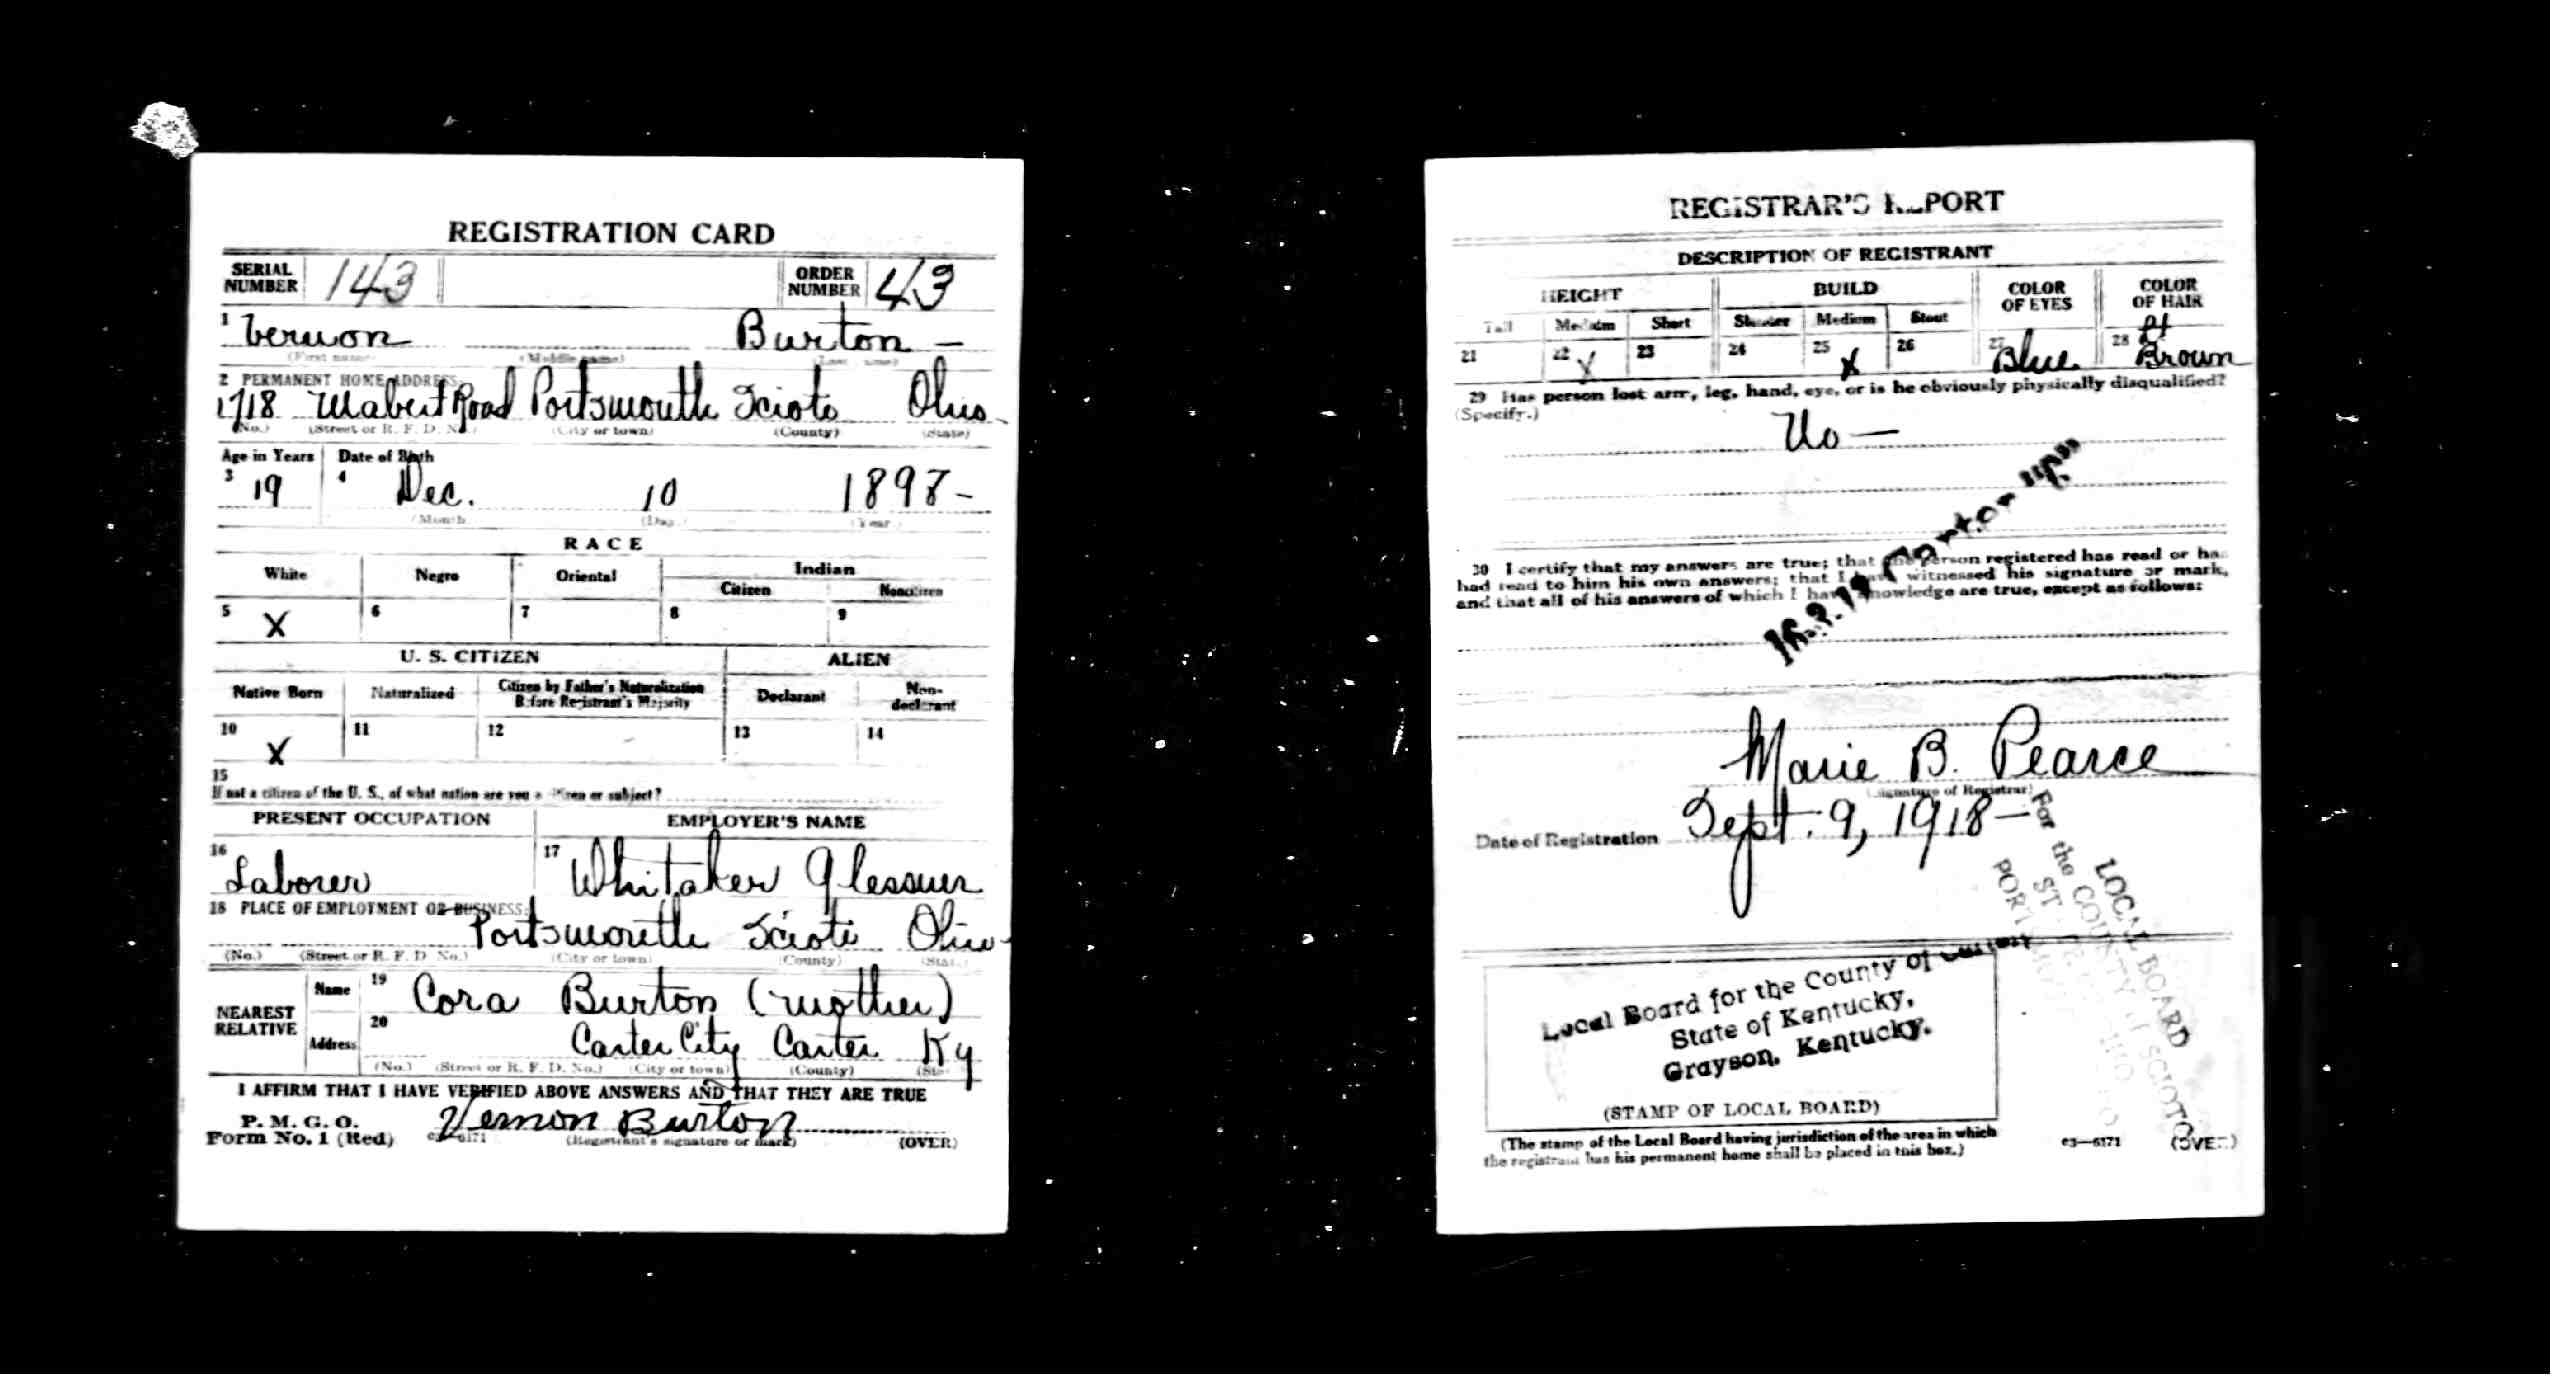 REGISTRATION CARD
SERIAL NUMBER 143 ORDER NUMBER 43
1 Vernon Burton -
(First name) (Middle name) (Last name)
2 PERMANENT HOME ADDRESS:
1718 Mabert Road Portsmouth Scioto Ohio
(No.) (Street or R. F. D. No.) (City or town) (County) (State)
Age in Years Date of Birth
3 19 4 Dec. 10 1898-
(Month) (Day) (Year)
RACE
White Negro Oriental Indian
Citizen Noncitizen
5 X 6 7 8 9
U. S. CITIZEN ALIEN
Native Born Naturalized Citizen by Father's Naturalization Before Registrant's Majority Declarant Non-declarant
10 X 11 12 13 14
15
If not a citizen of the U. S., of what nation are you a citizen or subject?
PRESENT OCCUPATION EMPLOYER'S NAME
16 Laborer 17 Whitaker Glessner
18 PLACE OF EMPLOYMENT OR BUSINESS:
Portsmouth Scioto Ohio
(No.) (Street or R. F. D. No.) (City or town) (County) (State)
NEAREST RELATIVE Name 19 Cora Burton (mother)
Address 20 Carter City Carter Ky
(No.) (Street or R. F. D. No.) (City or town) (County) (State)
I AFFIRM THAT I HAVE VERIFIED ABOVE ANSWERS AND THAT THEY ARE TRUE
P. M. G. O.
Form No. 1 (Red) 03-6171 Vernon Burton
(Registrant's signature or mark) (OVER)
REGISTRAR'S REPORT
DESCRIPTION OF REGISTRANT
HEIGHT BUILD COLOR OF EYES COLOR OF HAIR
Tall Medium Short Slender Medium Stout
21 22 X 23 24 25 X 26 27 Blue 28 Lt Brown
29 Has person lost arm, leg, hand, eye, or is he obviously physically disqualified?
(Specify.)
No—
30 I certify that my answers are true; that the person registered has read or has
had read to him his own answers; that I have witnessed his signature or mark,
and that all of his answers of which I have knowledge are true, except as follows:
Marie B. Pearce
(Signature of Registrar)
Date of Registration Sept. 9, 1918—
LOCAL BOARD
For the COUNTY of SCIOTO
Local Board for the County of Carter
State of Kentucky,
Grayson, Kentucky.
(STAMP OF LOCAL BOARD)
(The stamp of the Local Board having jurisdiction of the area in which
the registrant has his permanent home shall be placed in this box.)
03—6171 (OVER)